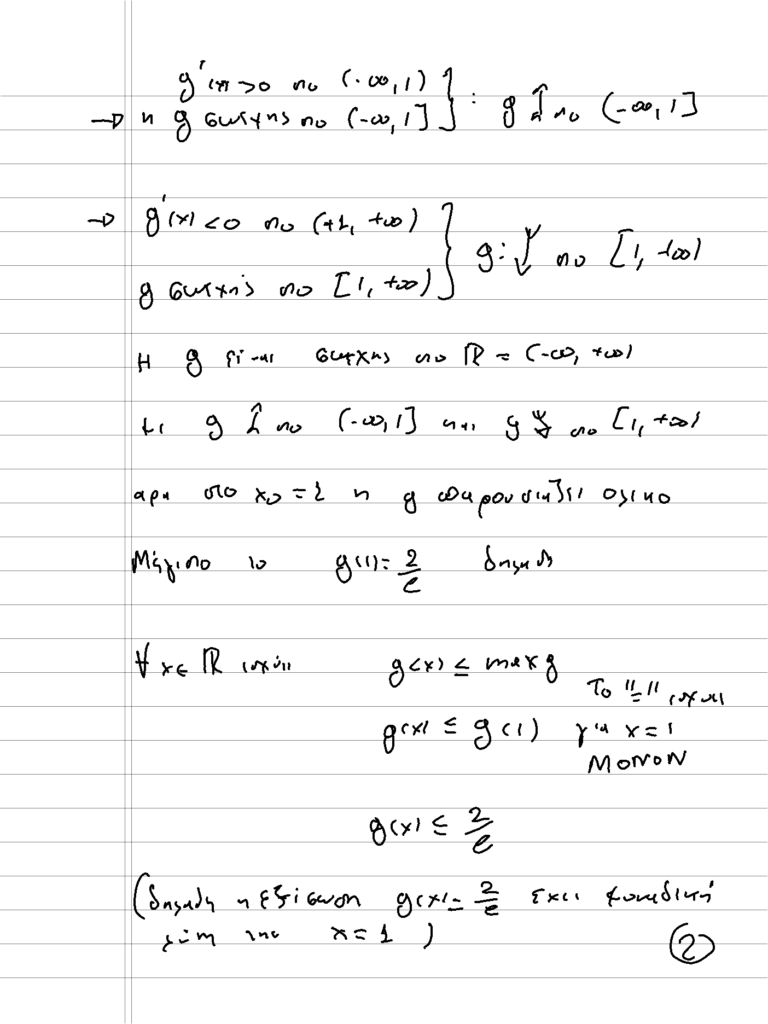 g'(x)>0 στο (-∞,1)
→ η g συνεχης στο (-∞,1] } : g ↑ στο (-∞,1]
→ g'(x)<0 στο (+1, +∞)
g συνεχής στο [1,+∞) } g: ↓ στο [1,+∞)
Η g είναι συνεχης στο ℝ = (-∞,+∞)
κι g ↑ στο (-∞,1] και g ↓ στο [1,+∞)
αρα στο x₀=1 η g παρουσιάζει ολικο
Μέγιστο το g(1)=2/e δηλαδή
∀ x∈ℝ ισχύει g(x) ≤ max g
Το "=" ισχυει
g(x) ≤ g(1) για x=1
ΜΟΝΟΝ
g(x) ≤ 2/e
(δηλαδη η εξίσωση g(x)=2/e έχει μοναδική
λύση την x=1 )
②